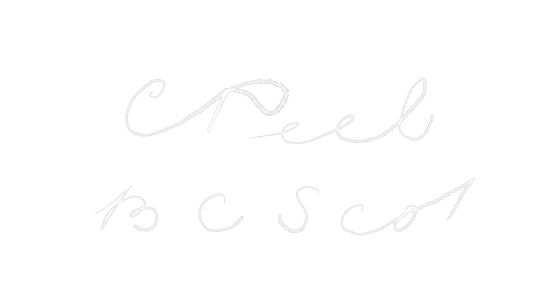 C Peel
B C S Cot